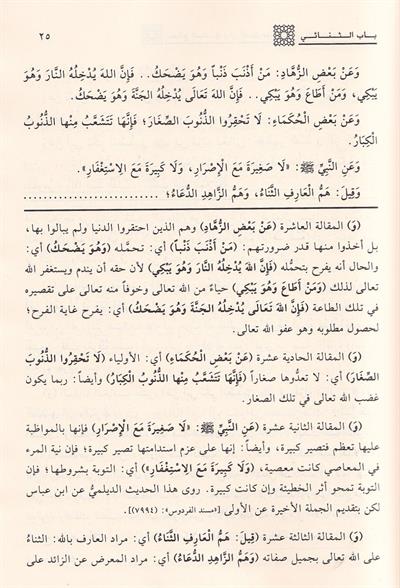 باب الثنائي ٢٥
وَعَنْ بَعْضِ الزُّهَّادِ: مَنْ أَذْنَبَ ذَنْباً وَهُوَ يَضْحَكُ.. فَإِنَّ اللهَ يُدْخِلُهُ النَّارَ وَهُوَ
يَبْكِي، وَمَنْ أَطَاعَ وَهُوَ يَبْكِي.. فَإِنَّ اللهَ تَعَالَى يُدْخِلُهُ الجَنَّةَ وَهُوَ يَضْحَكُ.
وَعَنْ بَعْضِ الْحُكَمَاءِ: لَا تَحْقِرُوا الذُّنُوبَ الصِّغَارَ؛ فَإِنَّهَا تَتَشَعَّبُ مِنْها الذُّنُوبُ
الْكِبَارُ.
وَعَنِ النَّبِيِّ ﷺ: «لَا صَغِيرَةَ مَعَ الْإِصْرَارِ، وَلَا كَبِيرَةَ مَعَ الِاسْتِغْفَارِ».
وَقِيلَ: هَمُّ الْعَارِفِ الثَّنَاءُ، وَهَمُّ الزَّاهِدِ الدُّعَاءُ؛ ..........................
(وَ) المقالة العاشرة (عَنْ بَعْضِ الزُّهَّادِ) وهم الذين احتقروا الدنيا ولم يبالوا بها،
بل أخذوا منها قدر ضرورتهم: (مَنْ أَذْنَبَ ذَنْباً) أي: تحمَّله (وَهُوَ يَضْحَكُ) أي:
والحال أنه يفرح بتحمُّله (فَإِنَّ اللهَ يُدْخِلُهُ النَّارَ وَهُوَ يَبْكِي) لأن حقه أن يندم ويستغفر الله
تعالى لذلك (وَمَنْ أَطَاعَ وَهُوَ يَبْكِي) حياءً من الله تعالى وخوفاً منه تعالى على تقصيره
في تلك الطاعة (فَإِنَّ اللهَ تَعَالَى يُدْخِلُهُ الجَنَّةَ وَهُوَ يَضْحَكُ) أي: يفرح غاية الفرح؛
لحصول مطلوبه وهو عفو الله تعالى.
(وَ) المقالة الحادية عشرة (عَنْ بَعْضِ الْحُكَمَاءِ) أي: الأولياء (لَا تَحْقِرُوا الذُّنُوبَ
الصِّغَارَ) أي: لا تعدُّوها صغاراً (فَإِنَّهَا تَتَشَعَّبُ مِنْهَا الذُّنُوبُ الْكِبَارُ) وأيضاً: ربما يكون
غضب الله تعالى في تلك الصغار.
(وَ) المقالة الثانية عشرة (عَنِ النَّبِيِّ ﷺ: «لَا صَغِيرَةَ مَعَ الْإِصْرَارِ») فإنها بالمواظبة
عليها تعظم فتصير كبيرة، وأيضاً: إنها على عزم استدامتها تصير كبيرة؛ فإن نية المرء
في المعاصي كانت معصية، (وَلَا كَبِيرَةَ مَعَ الِاسْتِغْفَارِ») أي: التوبة بشروطها؛ فإن
التوبة تمحو أثر الخطيئة وإن كانت كبيرة. روى هذا الحديث الديلميُّ عن ابن عباس
لكن بتقديم الجملة الأخيرة عن الأولى [«مسند الفردوس»: (٧٩٩٤)].
(وَ) المقالة الثالثة عشرة (قِيلَ: هَمُّ الْعَارِفِ الثَّنَاءُ) أي: مراد العارف بالله: الثناءُ
على الله تعالى بجميل صفاته (وَهَمُّ الزَّاهِدِ الدُّعَاءُ) أي: مراد المعرض عن الزائد على